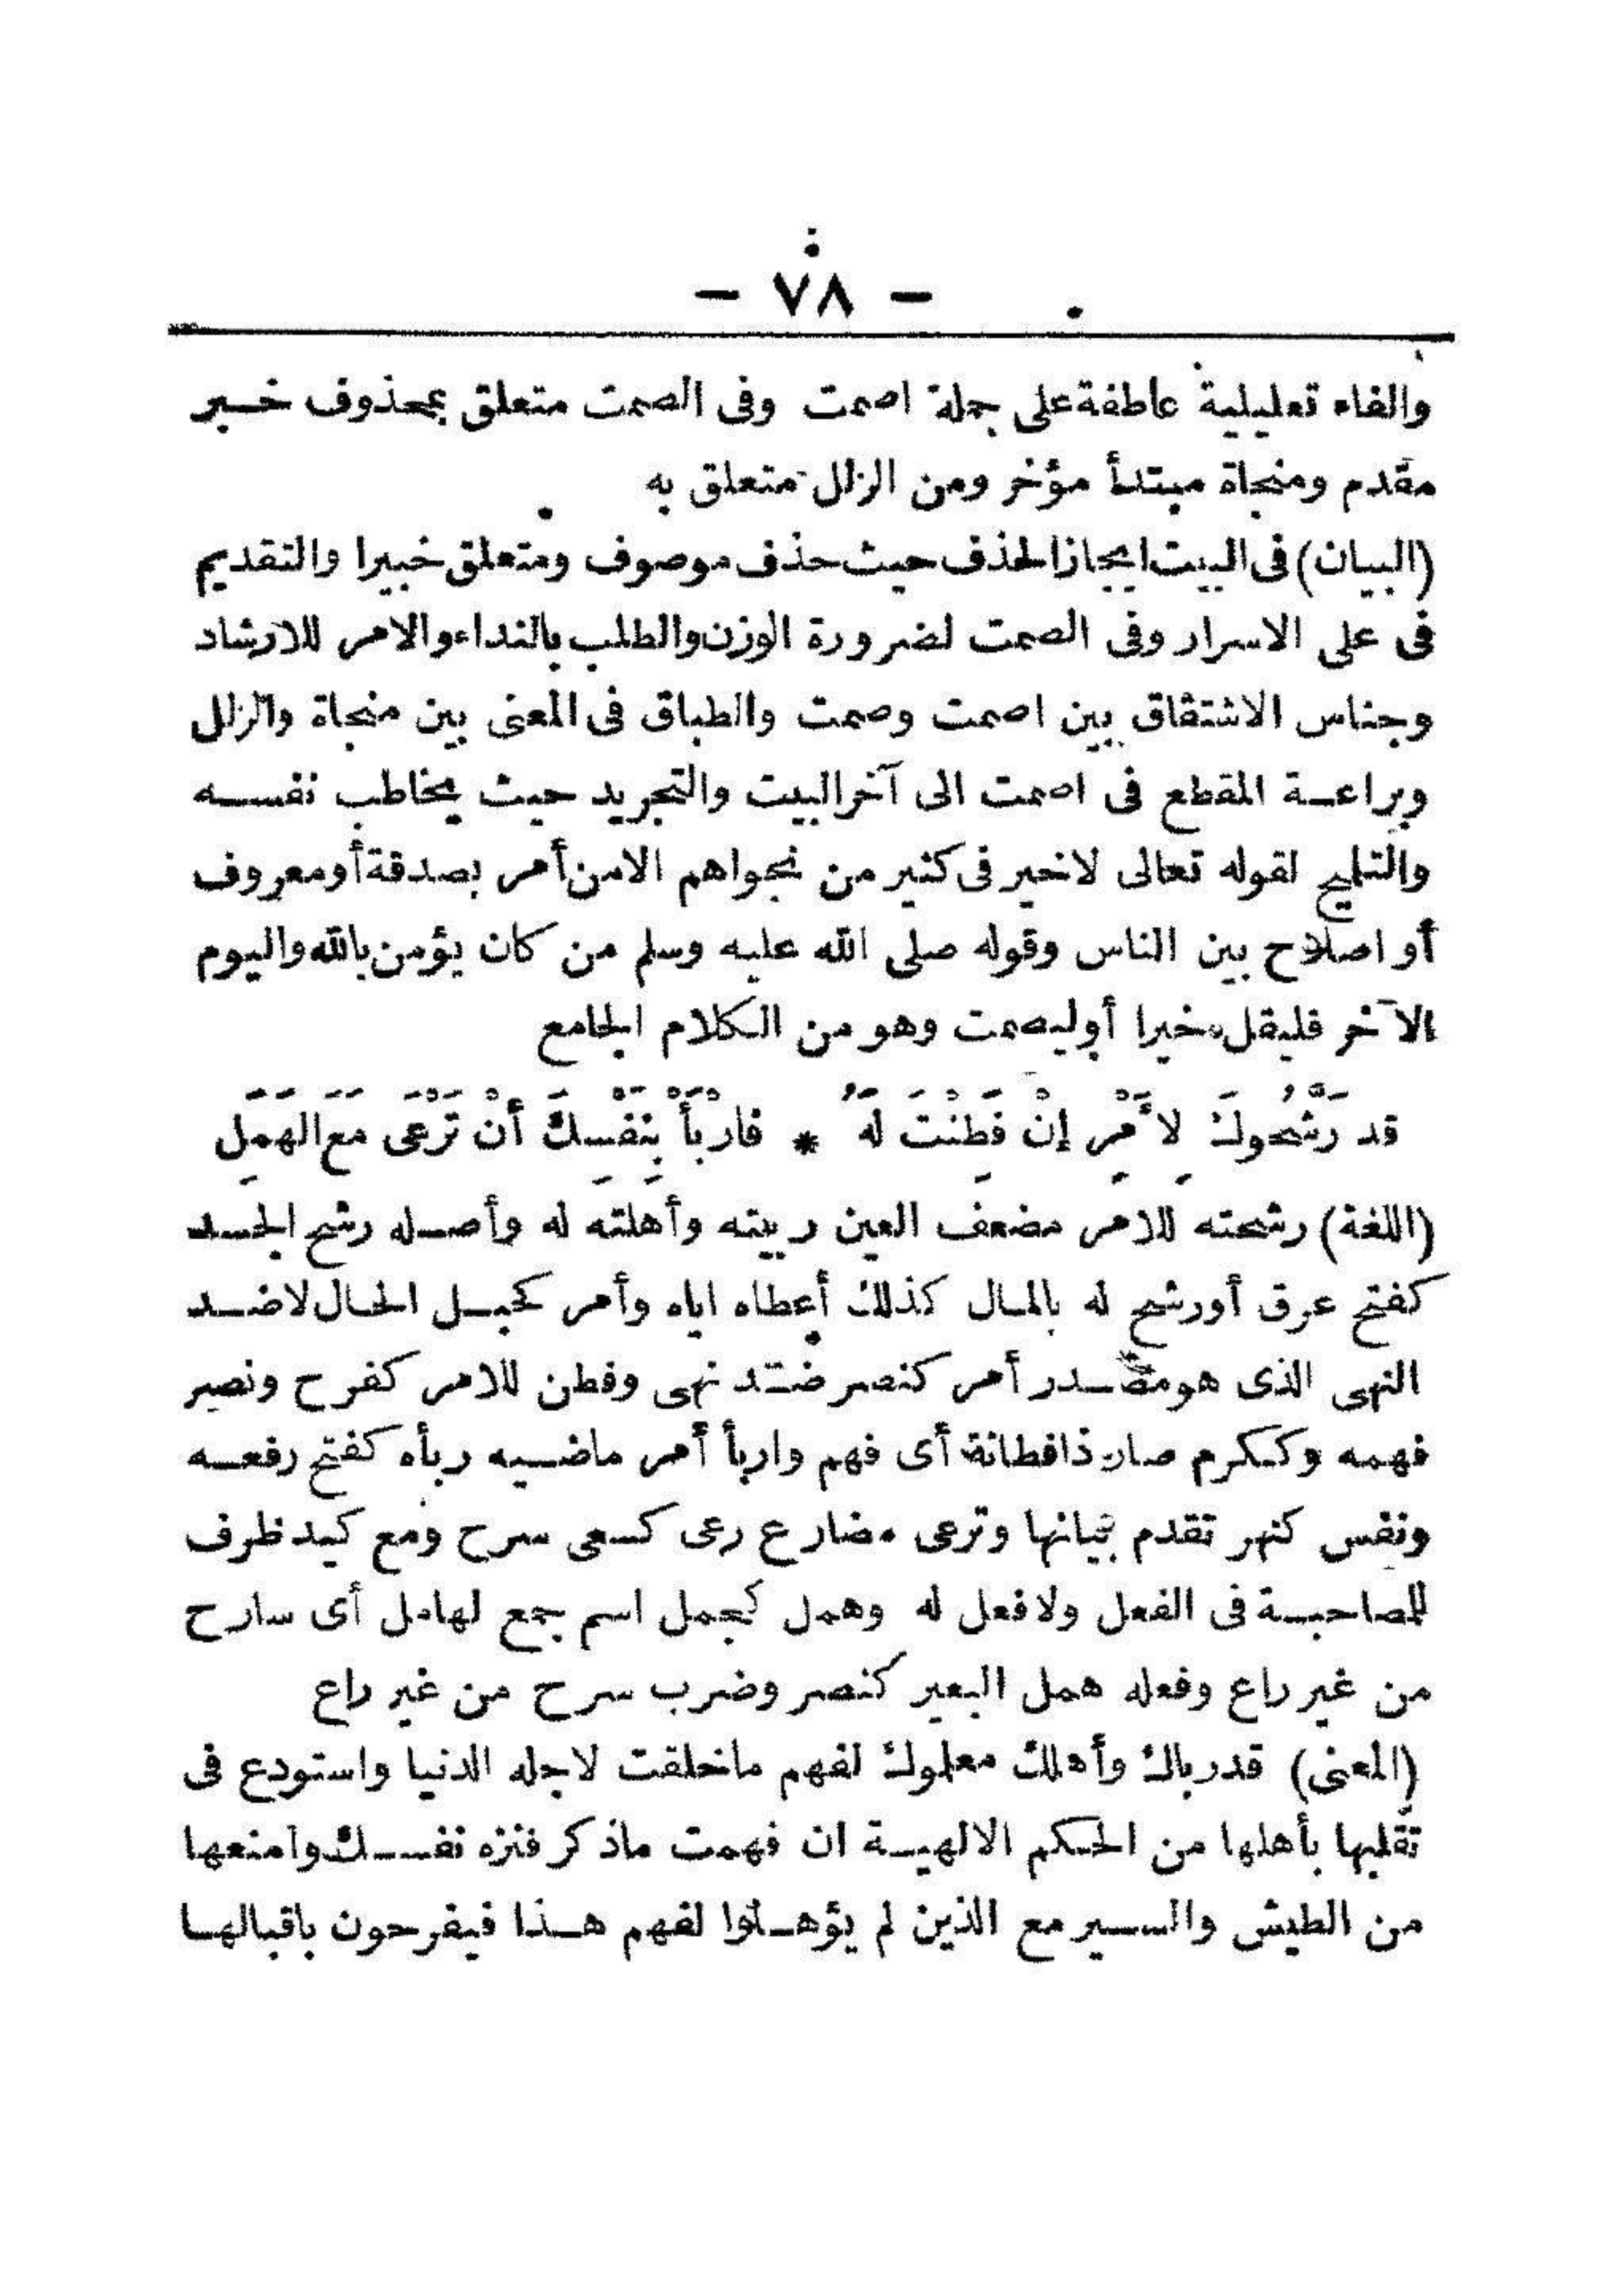 — ٧٨ —
والفاء تعليلية عاطفة على جملة اصمت وفى الصمت متعلق بمحذوف خبر
مقدم ومنجاة مبتدأ مؤخر ومن الزلل متعلق به
(البيان) فى البيت ايجاز الحذف حيث حذف موصوف ومتعلق خبيرا والتقديم
فى على الاسرار وفى الصمت لضرورة الوزن والطلب بالنداء والامر للارشاد
وجناس الاشتقاق بين اصمت وصمت والطباق فى المعنى بين منجاة والزلل
وبراعة المقطع فى اصمت الى آخر البيت والتجريد حيث يخاطب نفسه
والتلميح لقوله تعالى لا خير فى كثير من نجواهم الا من أمر بصدقة أو معروف
أو اصلاح بين الناس وقوله صلى الله عليه وسلم من كان يؤمن بالله واليوم
الآخر فليقل خيرا أوليصمت وهو من الكلام الجامع
قد رَشَّحُوكَ لِأَمْرٍ إِنْ فَطِنْتَ لَهُ * فارْبَأْ بِنَفْسِكَ أَنْ تَرْعَى مَعَ الهَمَلِ
(اللغة) رشحته للامر مضعف العين ربيته وأهلته له وأصله رشح الجسد
كفتح عرق أورشح له بالمال كذلك أعطاه اياه وأمر كحبل الحال لا ضد
النهى الذى هو مصدر أمر كنصر ضد نهى وفطن للامر كفرح ونصر
فهمه وككرم صار ذا فطانة أى فهم واربأ أمر ماضيه ربأه كفتح رفعه
ونفس كنهر تقدم بيانها وترعى مضارع رعى كسعى سرح ومع كيد ظرف
للمصاحبة فى الفعل ولا فعل له وهمل كجمل اسم جمع لهامل أى سارح
من غير راع وفعله همل البعير كنصر وضرب سرح من غير راع
(المعنى) قدر باك وأهلك معلموك لفهم ما خلقت لاجله الدنيا واستودع فى
تقلبها بأهلها من الحكم الالهية ان فهمت ماذكر فنزه نفسك وامنعها
من الطيش والسير مع الذين لم يؤهلوا لفهم هذا فيفرحون باقبالها